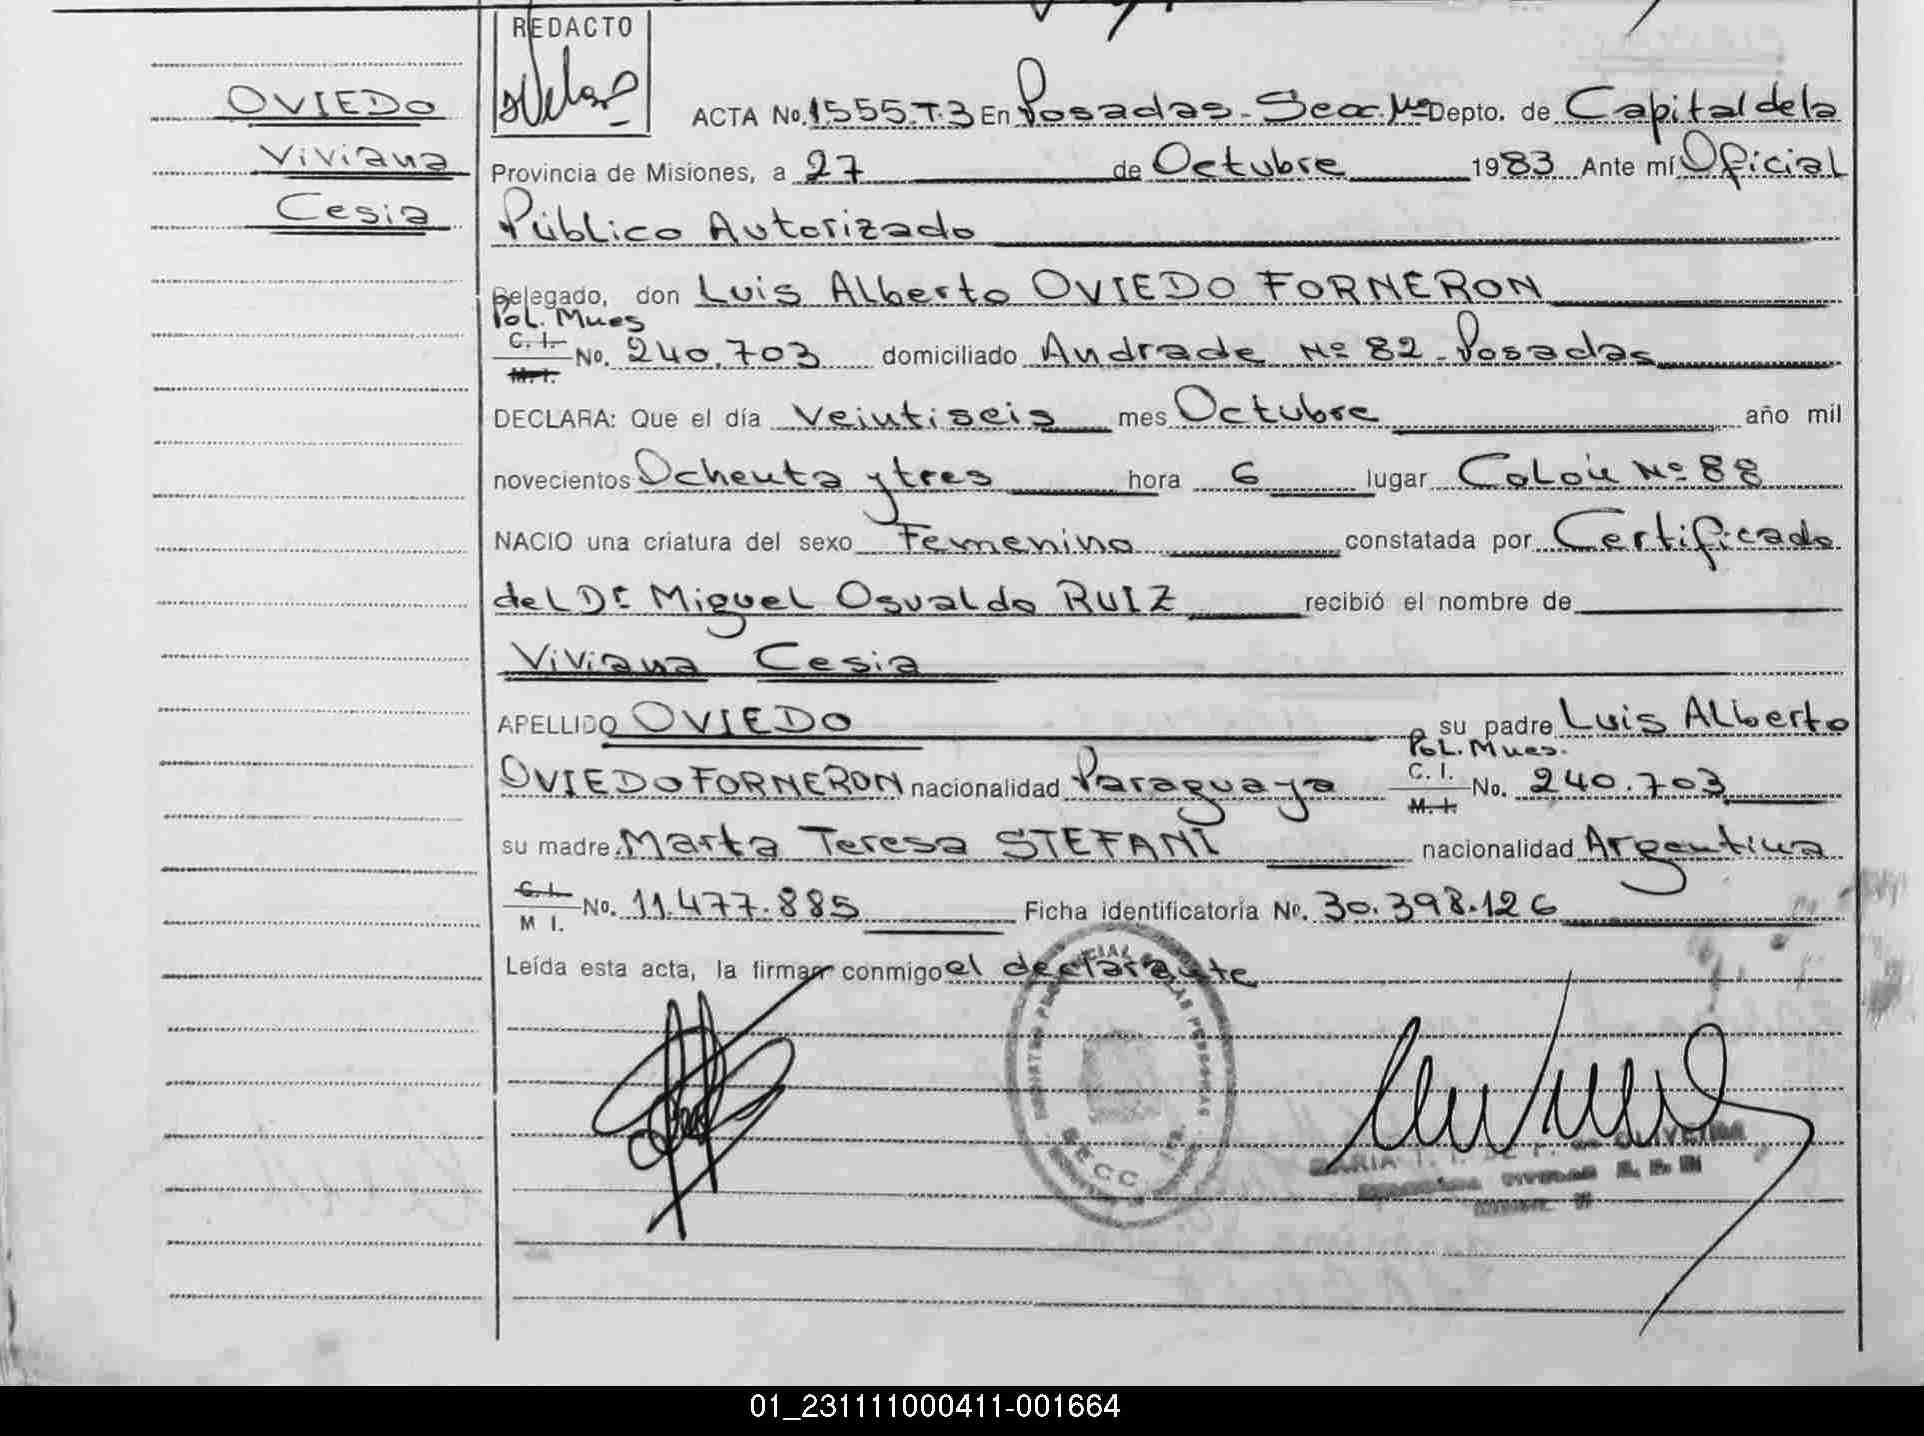 REDACTO
OVIEDO
Viviana
Cesia
ACTA No. 1555.T.3 En Posadas - Secc. Depto. de Capital de la
Provincia de Misiones, a 27 de Octubre 1983 Ante mí Oficial
Público Autorizado
Delegado, don Luis Alberto OVIEDO FORNERON
Pol. Mnes
C. I. No. 240.703 domiciliado Andrade Nº 82 - Posadas
M. I.
DECLARA: Que el día Veintiseis mes Octubre año mil
novecientos Ochenta y tres hora 6 lugar Colón Nº 88
NACIO una criatura del sexo Femenino constatada por Certificado
del Dr Miguel Osvaldo RUIZ recibió el nombre de
Viviana Cesia
APELLIDO OVIEDO su padre Luis Alberto
Pol. Mnes.
OVIEDO FORNERON nacionalidad Paraguaya C. I. No. 240.703
M. I.
su madre Marta Teresa STEFANI nacionalidad Argentina
C. I. No. 11.477.885 Ficha identificatoria No. 30.398.126
M I.
Leída esta acta, la firman conmigo el declarante
REGISTRO PROVINCIAL DE LAS PERSONAS
MARIA DE OLIVEIRA
01_231111000411-001664